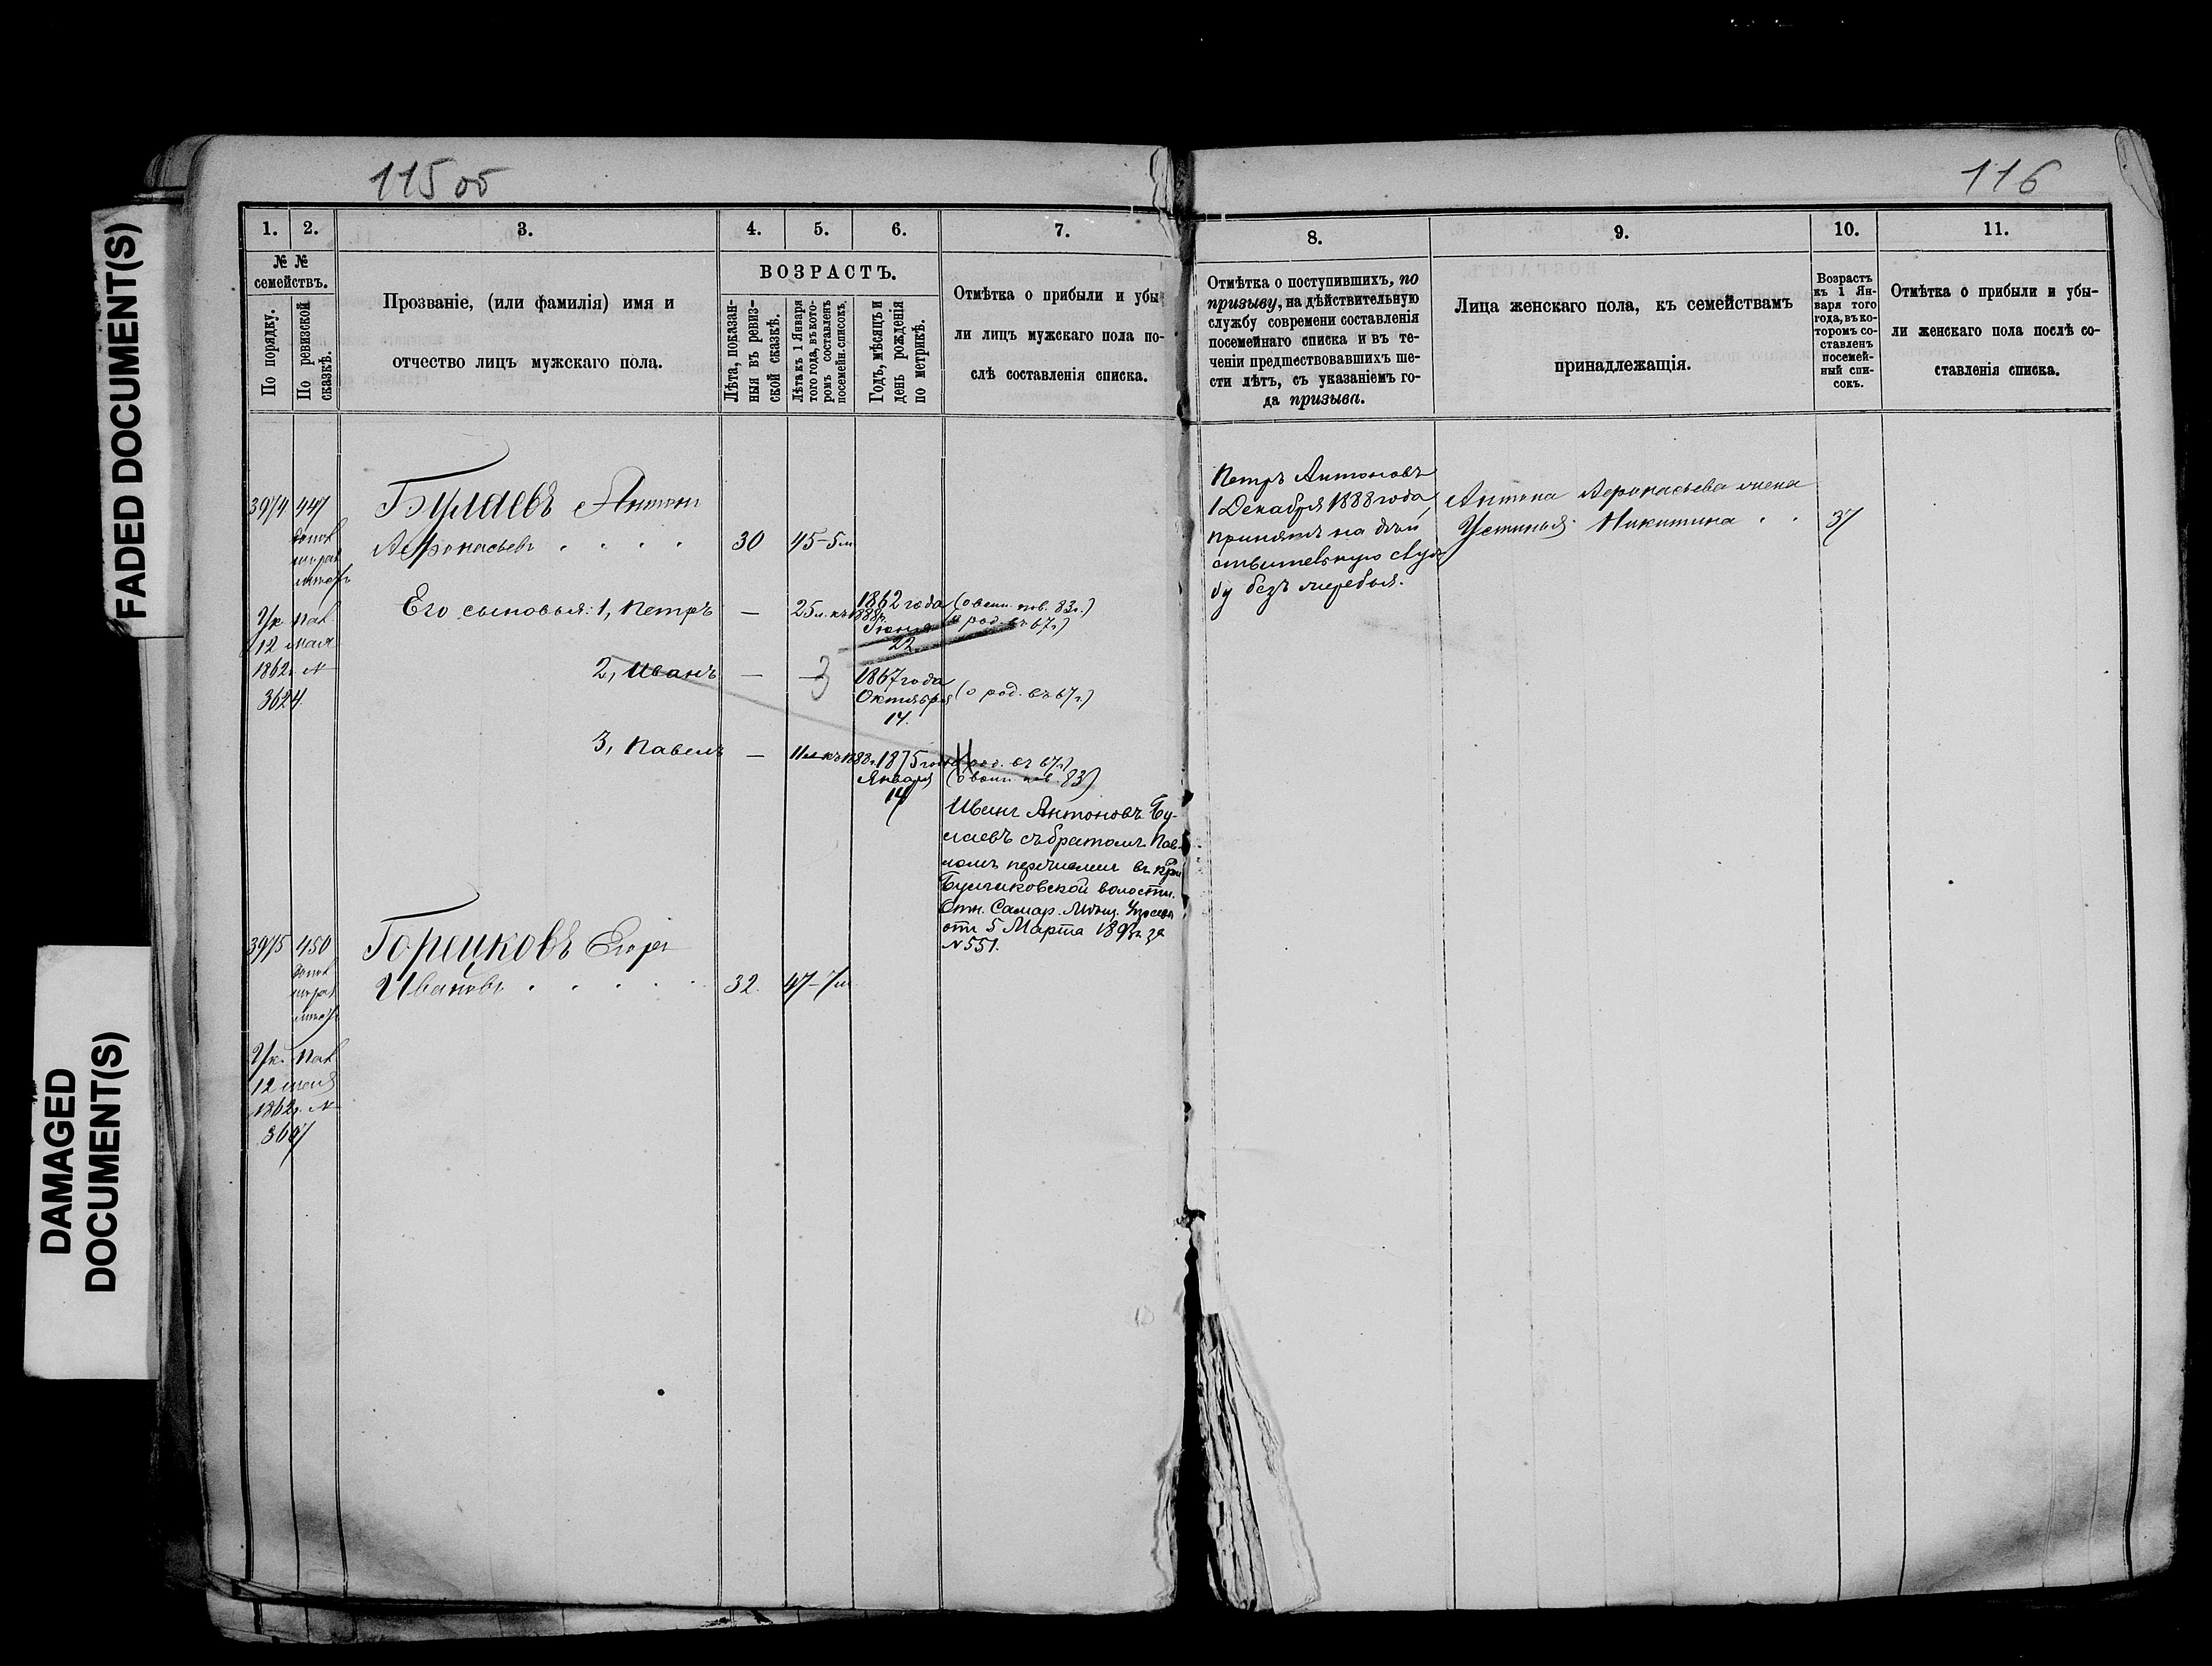 FADED DOCUMENT(S)
DAMAGED
DOCUMENT(S)
115 об
1.
2.
3.
4.
5.
6.
7.
№ №
семействъ.
По порядку.
По ревизской
сказкѣ.
Прозваніе, (или фамилія) имя и
отчество лицъ мужскаго пола.
ВОЗРАСТЪ.
Лѣта, показан-
ныя въ ревиз-
ской сказкѣ.
Лѣта къ 1 Января
того года, въ кото-
ромъ составленъ
посемейн. списокъ.
Годъ, мѣсяцъ и
день рожденія
по метрикѣ.
Отмѣтка о прибыли и убы-
ли лицъ мужскаго пола по-
слѣ составленія списка.
3974
447
Булаевъ Антонъ
Афонасьевъ
30
45-5м
Ук. Пал.
12 мая
1862г. №
3624
Его сыновья: 1, Петръ
—
25 л. къ 1888г.
1862 года
Іюня
22
(о воин. пов. 83г.)
(о род. въ 67г.)
2, Иванъ
—
3
1867 года
Октября
14.
(о род. въ 67г.)
3, Павелъ
—
1875 года
Января
14
(о род. въ 67г.)
(о воин. пов. 83)
Иванъ Антоновъ Бу-
лаевъ съ братомъ Пав-
ломъ перечислен въ
волости.
Отн. Самар. Мѣщ.
отъ 5 Марта
№ 551.
3975
450
Горецковъ Егоръ
Ивановъ
32.
47-7м
Ук. Пал.
12
1862г. №
3607
116
8.
9.
10.
11.
Отмѣтка о поступившихъ, по
призыву, на дѣйствительную
службу современи составленія
посемейнаго списка и въ те-
ченіи предшествовавшихъ ше-
сти лѣтъ, съ указаніемъ го-
да призыва.
Лица женскаго пола, къ семействамъ
принадлежащія.
Возрастъ
къ 1 Ян-
варя того
года, въ ко-
торомъ со-
ставленъ
посемей-
ный спи-
сокъ.
Отмѣтка о прибыли и убы-
ли женскаго пола послѣ со-
ставленія списка.
Петръ Антоновъ
1 Декабря 1888 года
принятъ на дѣй
ствительную служ
бу безъ жеребья.
Антона Афонасьева жена
Устинья Никитина
37